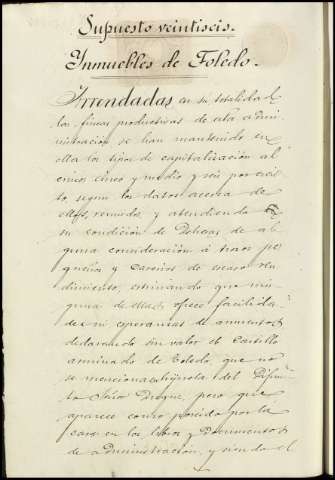 Supuesto veintiseis.
Inmuebles de Toledo.
Arrendadas en su totalidad
las fincas productivas de esta admi-
nistración se han mantenido en
ella los tipos de capitalización al
cinco, cinco y medio y seis por cien-
to, segun los datos acerca de
ellas reunidos, y atendiendo
su condición de Dehesas de al-
guna consideración á trozos pe-
queños y Carrizos de escaso ren-
dimiento, estimando que nin-
guna de ellas ofrece facilida-
des ni esperanzas de aumentos y
declarando sin valor el Castillo
arruinado de Toledo, que no
se menciona en hijuela del Difun-
to Señor Duque, pero que
aparece como poseido por la
casa en los libros y documentos
de administración, y siendo el